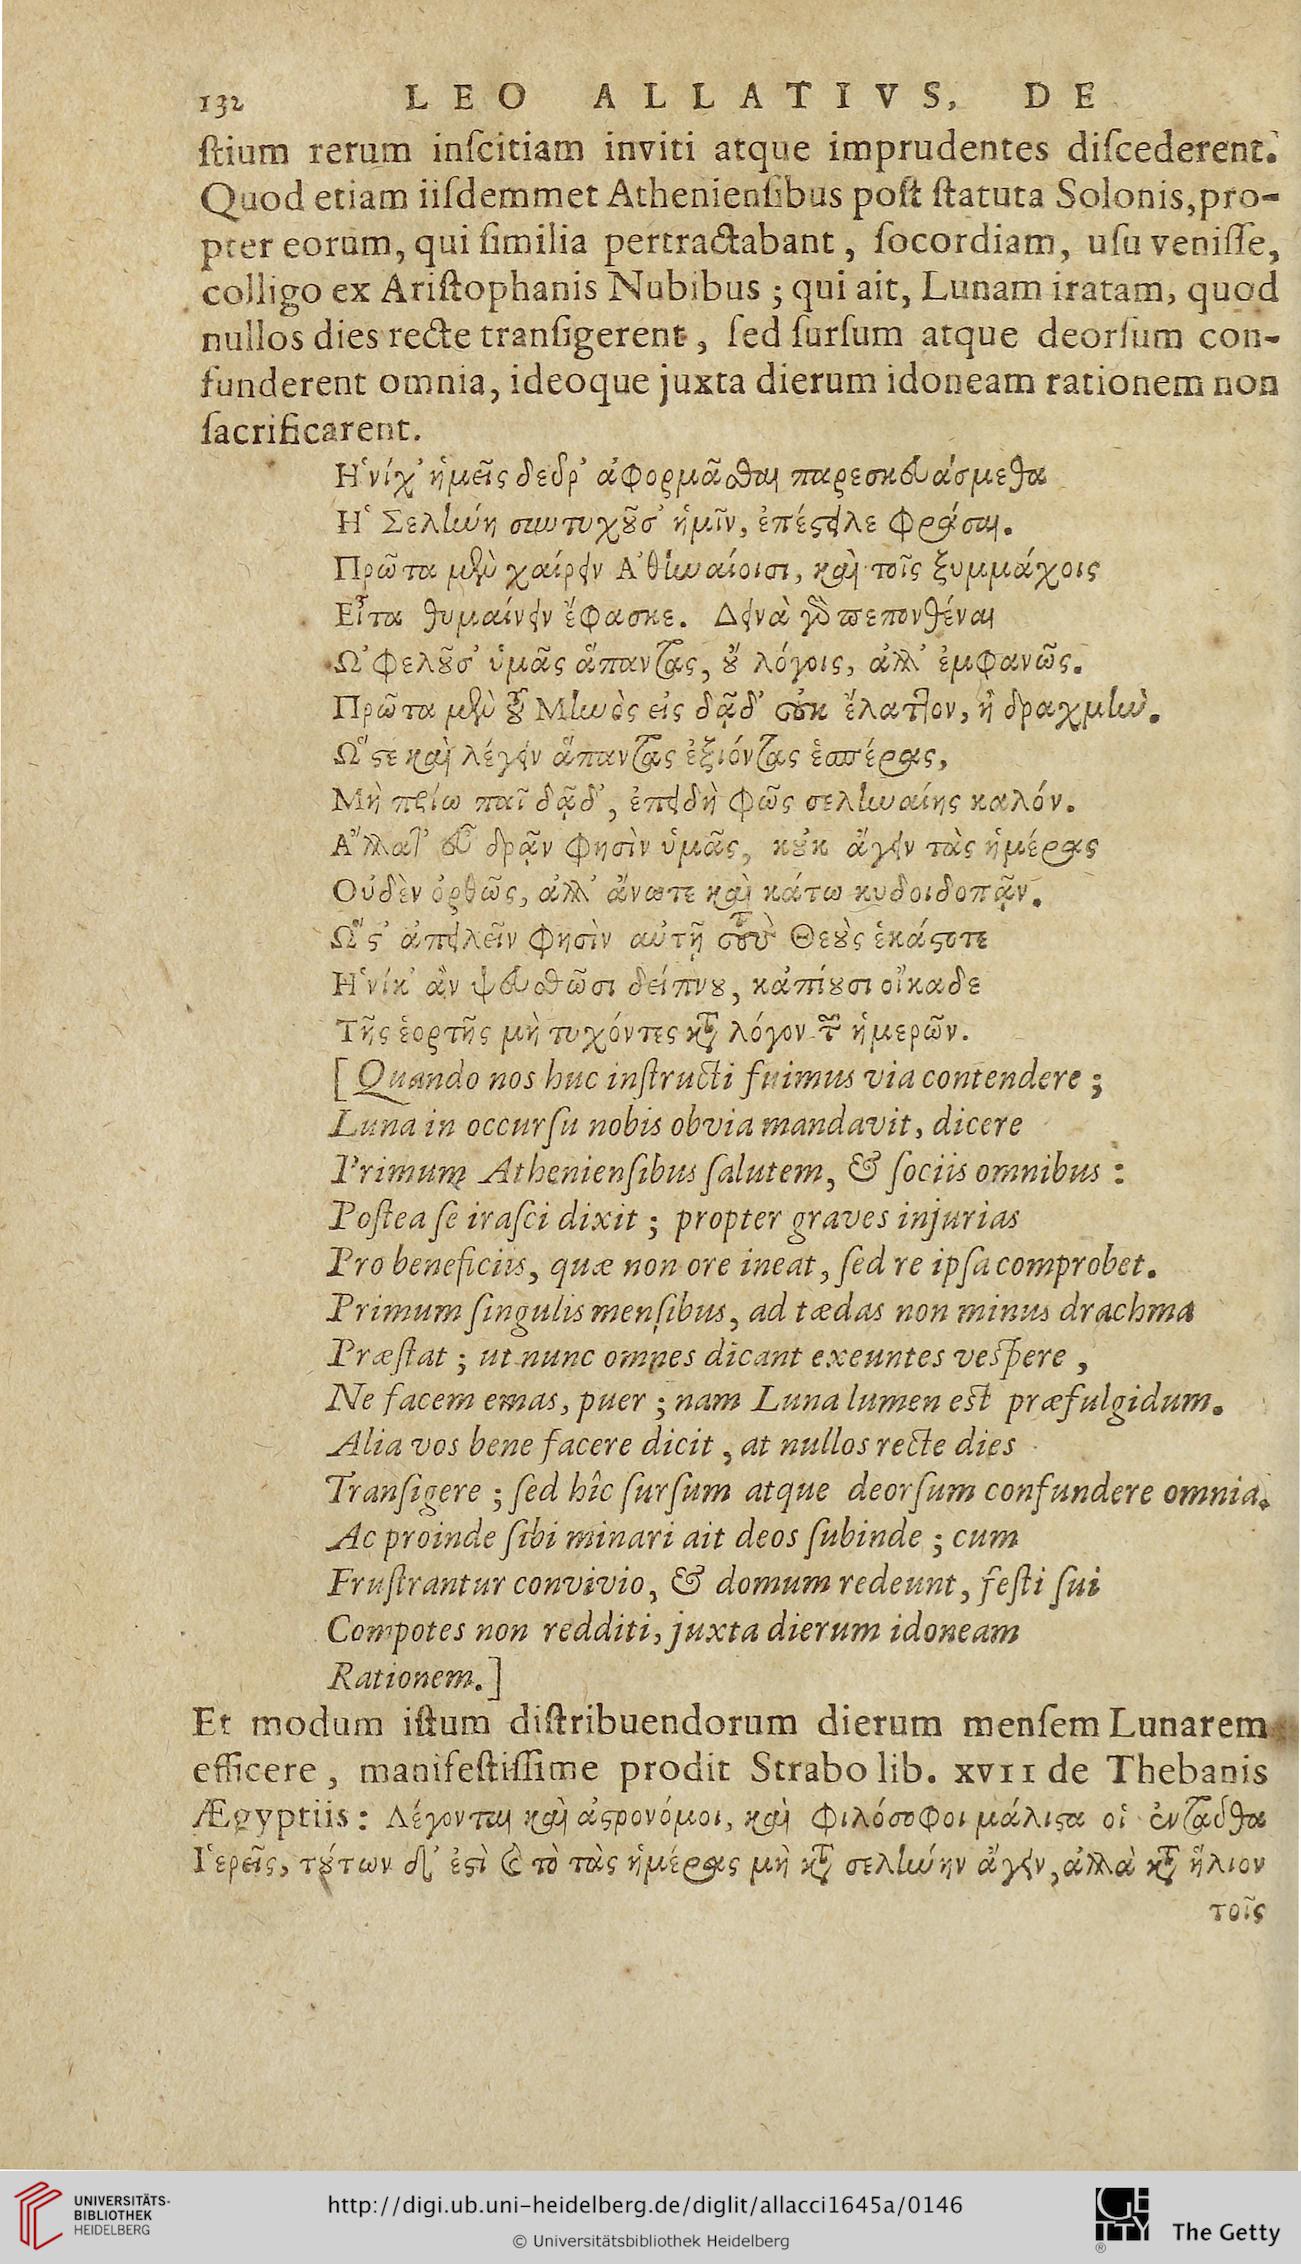 132 LEO ALLATIVS, DE
ſtium rerum inſcitiam inviti atque imprudentes diſcederent.
Quod etiam iiſdemmet Athenienſibus poſt ſtatuta Solonis, pro-
pter eorum, qui ſimilia pertractabant, ſocordiam, uſu veniſſe,
colligo ex Ariſtophanis Nubibus; qui ait, Lunam iratam, quod
nullos dies recte tranſigerent, ſed ſurſum atque deorſum con-
funderent omnia, ideoque juxta dierum idoneam rationem non
ſacrificarent.
Ἡνίχ’ ἡμεῖς δεδρ’ ἀφορμᾶσθαι παρεσκευάσμεθα
Ἡ Σελήνη συντυχοῦσ’ ἡμῖν, ἐπέστειλε φράσαι.
Πρῶτα μὲν χαίρειν Ἀθηναίοισι, καὶ τοῖς ξυμμάχοις
Εἶτα θυμαίνειν ἔφασκε. Δεινὰ γὰρ πεπονθέναι
Ὠφελοῦσ’ ὑμᾶς ἅπαντας, οὐ λόγοις, ἀλλ’ ἐμφανῶς.
Πρῶτα μὲν τοῦ Μηνὸς εἰς δᾷδ’ οὐκ ἔλαττον, ἢ δραχμὴν.
Ὥστε καὶ λέγειν ἅπαντας ἐξιόντας ἑσπέρας,
Μὴ πρίω παῖ δᾷδ’, ἐπειδὴ φῶς σεληναίης καλόν.
Ἄλλατ’ εὖ δρᾷν φησὶν ὑμᾶς, κοὐκ ἄγειν τὰς ἡμέρας
Οὐδὲν ὀρθῶς, ἀλλ’ ἄνωτε καὶ κάτω κυδοιδοπᾷν.
Ὥστ’ ἀπειλεῖν φησὶν αὐτῇ τοὺς Θεοὺς ἑκάστοτε
Ἡνίκ’ ἂν ψευσθῶσι δείπνου, κἀπίουσι οἴκαδε
Τῆς ἑορτῆς μὴ τυχόντες κατὰ λόγον τῶν ἡμερῶν.
[Quando nos huc inſtructi fuimus via contendere;
Luna in occurſu nobis obvia mandavit, dicere
Primum Athenienſibus ſalutem, & ſociis omnibus:
Poſtea ſe iraſci dixit; propter graves injurias
Pro beneficiis, quæ non ore ineat, ſed re ipſa comprobet.
Primum ſingulis menſibus, ad tædas non minus drachma
Præſtat; ut nunc omnes dicant exeuntes veſpere,
Ne facem emas, puer; nam Luna lumen eſt præfulgidum.
Alia vos bene facere dicit, at nullos recte dies
Tranſigere; ſed hîc ſurſum atque deorſum confundere omnia.
Ac proinde ſibi minari ait deos ſubinde; cum
Fruſtrantur convivio, & domum redeunt, feſti ſui
Compotes non redditi, juxta dierum idoneam
Rationem.]
Et modum iſtum diſtribuendorum dierum menſem Lunarem
efficere, manifeſtiſſime prodit Strabo lib. XVII de Thebanis
Ægyptiis: Λέγονται καὶ ἀστρονόμοι, καὶ φιλόσοφοι μάλιστα οἱ ἐνταῦθα
Ἱερεῖς, τούτων δ’ ἐστὶ καὶ τὸ τὰς ἡμέρας μὴ κατὰ σελήνην ἄγειν, ἀλλὰ κατὰ ἥλιον
τοῖς
UNIVERSITÄTS-
BIBLIOTHEK
HEIDELBERG
http://digi.ub.uni-heidelberg.de/diglit/allacci1645a/0146
© Universitätsbibliothek Heidelberg
GETTY
® The Getty